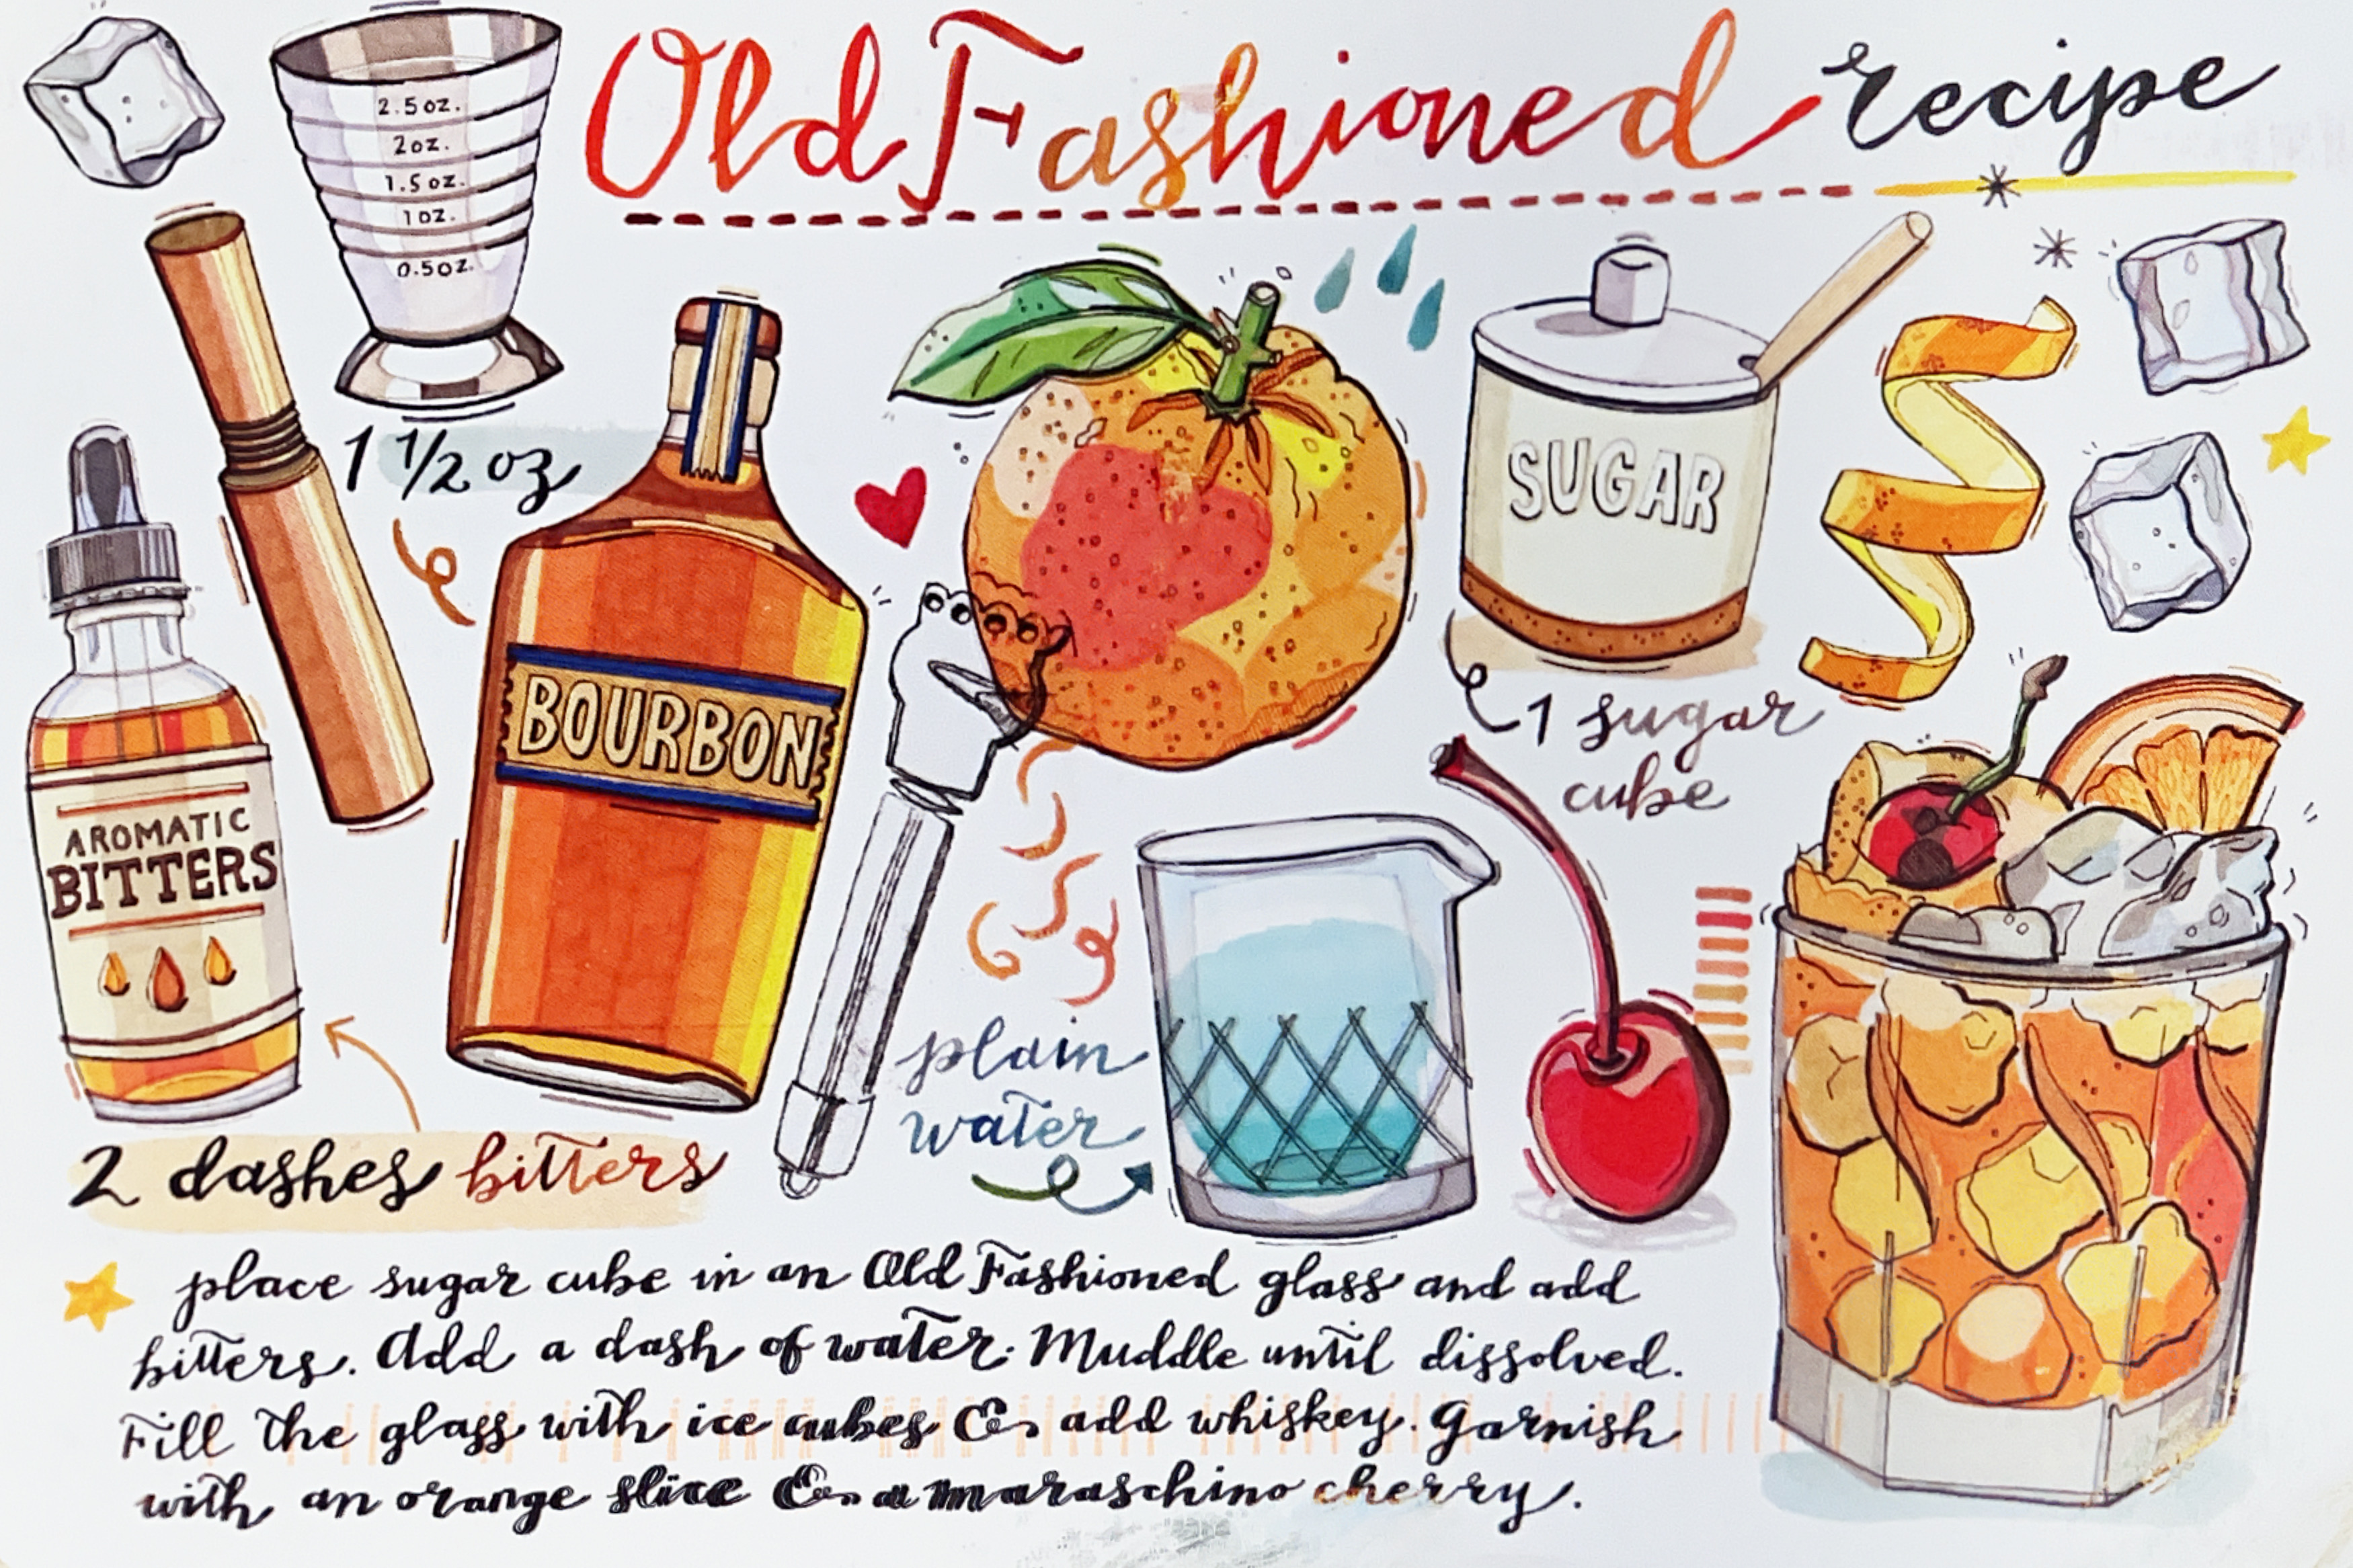 Old Fashioned recipe
2.5 oz.
2 oz.
1.5 oz.
1 oz.
0.5 oz.
1 1/2 oz
BOURBON
SUGAR
1 sugar
cube
AROMATIC
BITTERS
2 dashes bitters
plain
water
place sugar cube in an Old Fashioned glass and add
bitters. Add a dash of water. Muddle until dissolved.
Fill the glass with ice cubes & add whiskey. Garnish
with an orange slice & a maraschino cherry.